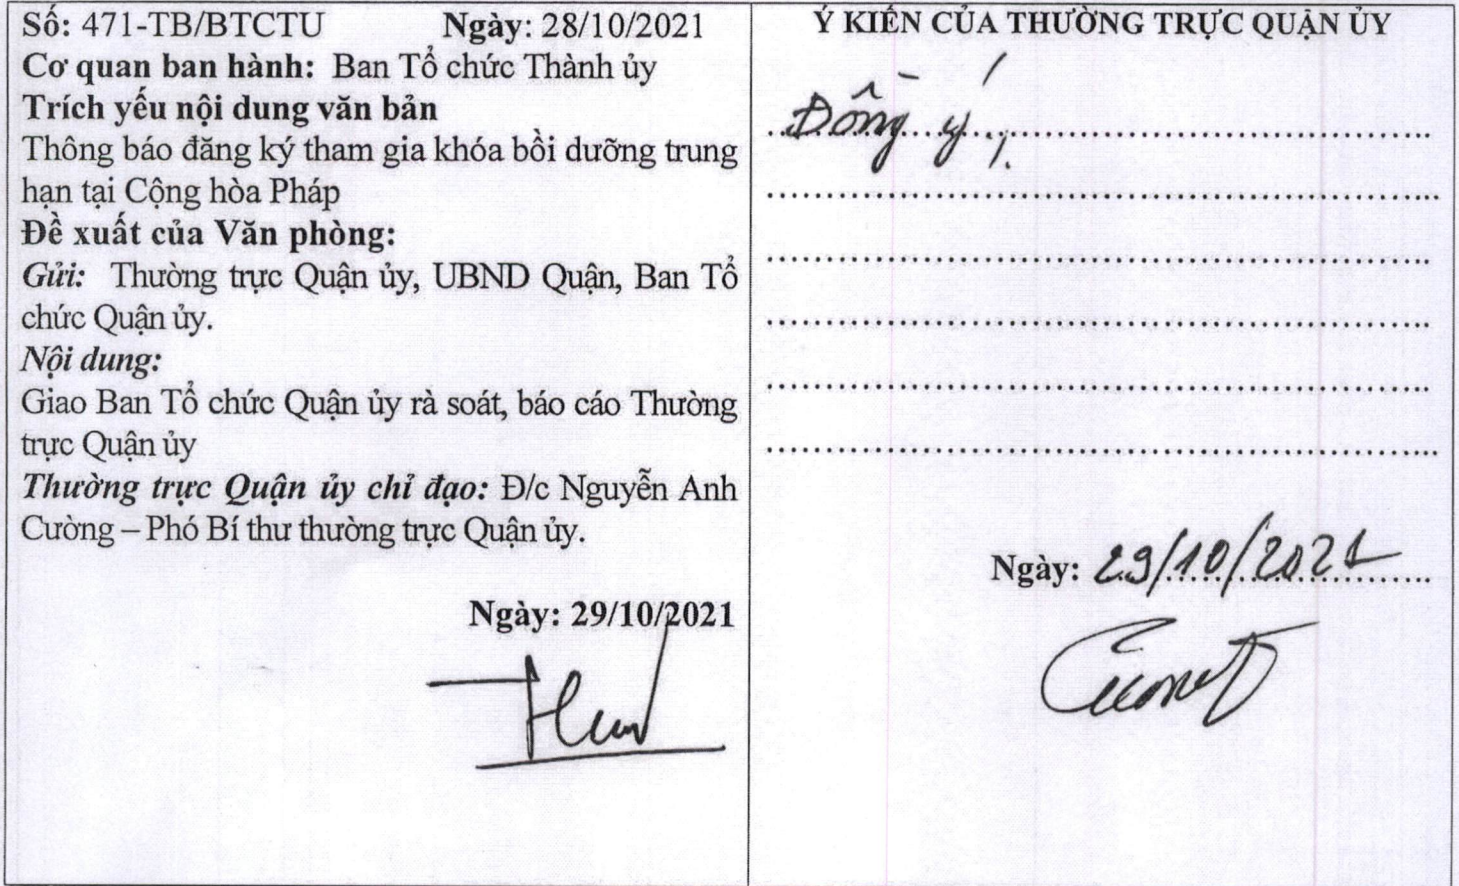 Số: 471-TB/BTCTU Ngày: 28/10/2021
Cơ quan ban hành: Ban Tổ chức Thành ủy
Trích yếu nội dung văn bản
Thông báo đăng ký tham gia khóa bồi dưỡng trung
hạn tại Cộng hòa Pháp
Đề xuất của Văn phòng:
Gửi: Thường trực Quận ủy, UBND Quận, Ban Tổ
chức Quận ủy.
Nội dung:
Giao Ban Tổ chức Quận ủy rà soát, báo cáo Thường
trực Quận ủy
Thường trực Quận ủy chỉ đạo: Đ/c Nguyễn Anh
Cường – Phó Bí thư thường trực Quận ủy.
Ngày: 29/10/2021
Ý KIẾN CỦA THƯỜNG TRỰC QUẬN ỦY
Đồng ý
Ngày: 29/10/2021